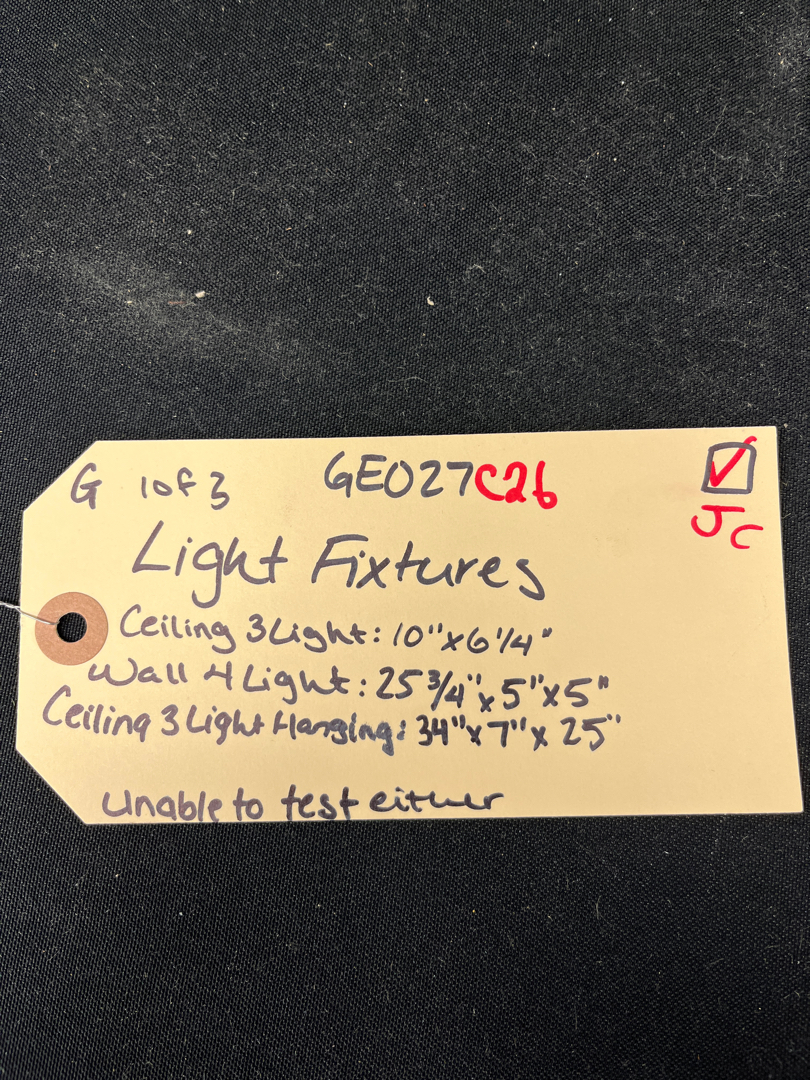 G 1 of 3 GEO27C26
JC
Light Fixtures
Ceiling 3 Light: 10" x 6 1/4"
Wall 4 Light: 25 3/4" x 5" x 5"
Ceiling 3 Light Hanging: 34" x 7" x 25"
Unable to test either